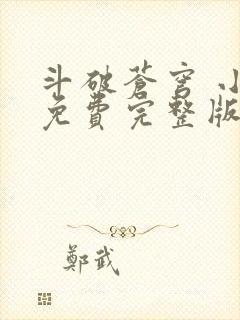 斗破蒼穹 小
免費完整版
鄭武